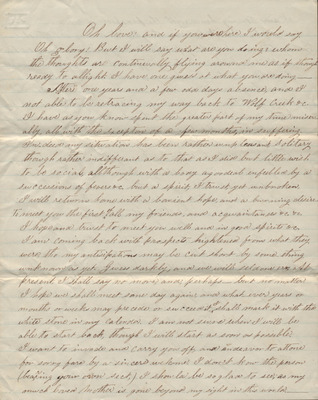 Oh love: and if you were here I would say
Oh glory. But I will say what are you doing: when
the thoughts are continually flying around me as if though
ready to allight I have one guess at what you are doing
After one years and a few odd days absence and I
not able to be retracing my way back to Wolf Creek &c
I have as you know spent the greater part of my time miser-
ally, all with the exception of a few months, in suffering
Indeed my situation has been rather unpleasant & solitary
though rather indifferent as to that as I did but little wish
to be social, although with a body agonized enfeebled by a
succession of fevers &c but a spirit, I trust yet unbroken
I will return home with a bouyant hope and a burning desire
to meet you the first fall my friends, and acquaintances &c &c
I hope and trust to meet you well and in good spirits &c
I am coming back with prospects heightened from what they
were tho my anticipations may be cut short by some thing
unknown as yet. Guess darkly, and we will
present I shall say no more and perhaps but no matter
I hope we shall meet some day again and what ever years or
months or weeks may precede or succeed, I shall mark it with the
white stone in my calendar. I am not sure when I will be
able to start back, though I will start as soon as possible
I want to invade and carry you off, and endeavor to atone
for some years by a sincere I don't know the person
(beeping your own self) I should be so glad to see, as my
much loved Mother is gone beyond my sight in this world